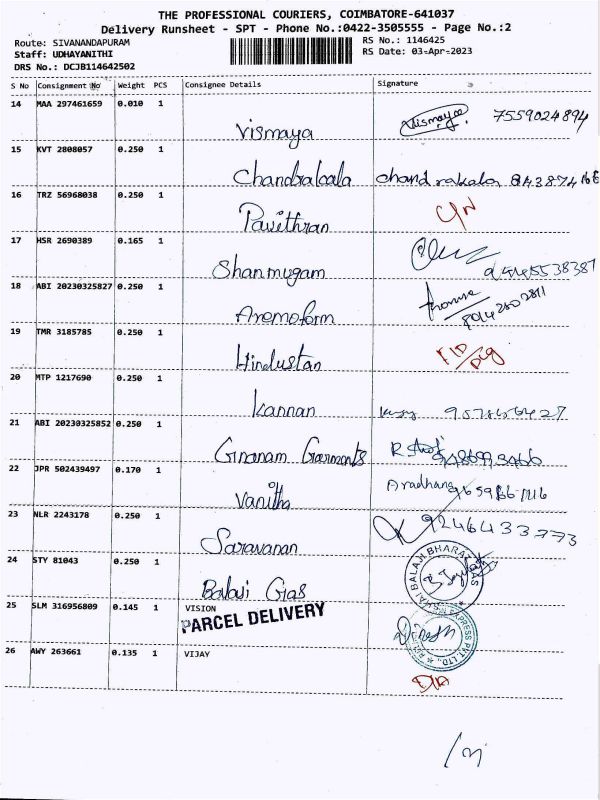 THE PROFESSIONAL COURIERS, COIMBATORE-641037
Delivery Runsheet - SPT - Phone No.:0422-3505555 - Page No.:2
Route: SIVANANDAPURAM
Staff: UDHAYANITHI
DRS No.: DCJB114642502
RS No.: 1146425
RS Date: 03-Apr-2023
S No Consignment No Weight PCS Consignee Details Signature
14 MAA 297461659 0.010 1 Vismaya Vismaya 7559024894
15 KVT 2808057 0.250 1 Chandralcala chandrakala
16 TRZ 56968038 0.250 1 Pavithran
17 HSR 2690389 0.165 1 Shanmugam
18 ABI 20230325827 0.250 1 Aromoform
19 TMR 3185785 0.250 1 Hindustan
20 MTP 1217690 0.250 1 Kannan
21 ABI 20230325852 0.250 1 Gnanam Garments
22 JPR 502439497 0.170 1 Vanitha Aradhana
23 NLR 2243178 0.250 1 Saravanan 9246433773
24 STY 81043 0.250 1 Balaji Gas
25 SLM 316956809 0.145 1 VISION
PARCEL DELIVERY
26 AWY 263661 0.135 1 VIJAY